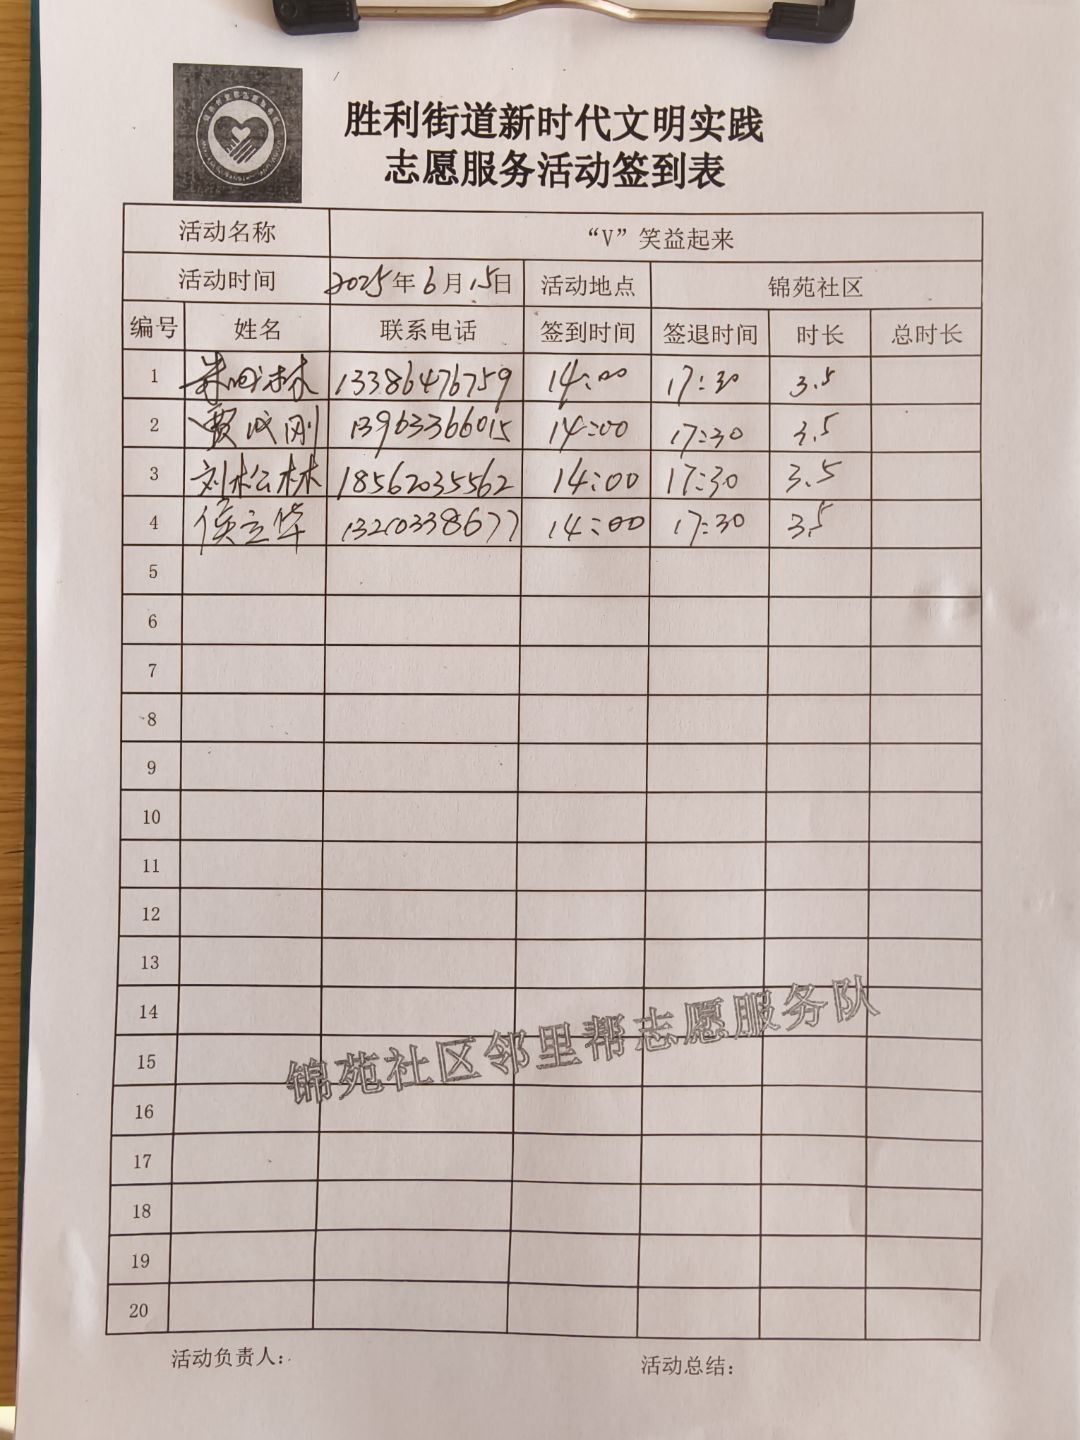 胜利街道新时代文明实践
志愿服务活动签到表
活动名称 “V”笑益起来
活动时间 2025年6月15日 活动地点 锦苑社区
编号 姓名 联系电话 签到时间 签退时间 时长 总时长
1 林 13386476759 14:00 17:30 3.5
2 贾成刚 13963366015 14:00 17:30 3.5
3 刘松林 18562035562 14:00 17:30 3.5
4 侯立华 13210338677 14:00 17:30 3.5
5
6
7
8
9
10
11
12
13
14
15
16
17
18
19
20
锦苑社区邻里帮志愿服务队
活动负责人: 活动总结: